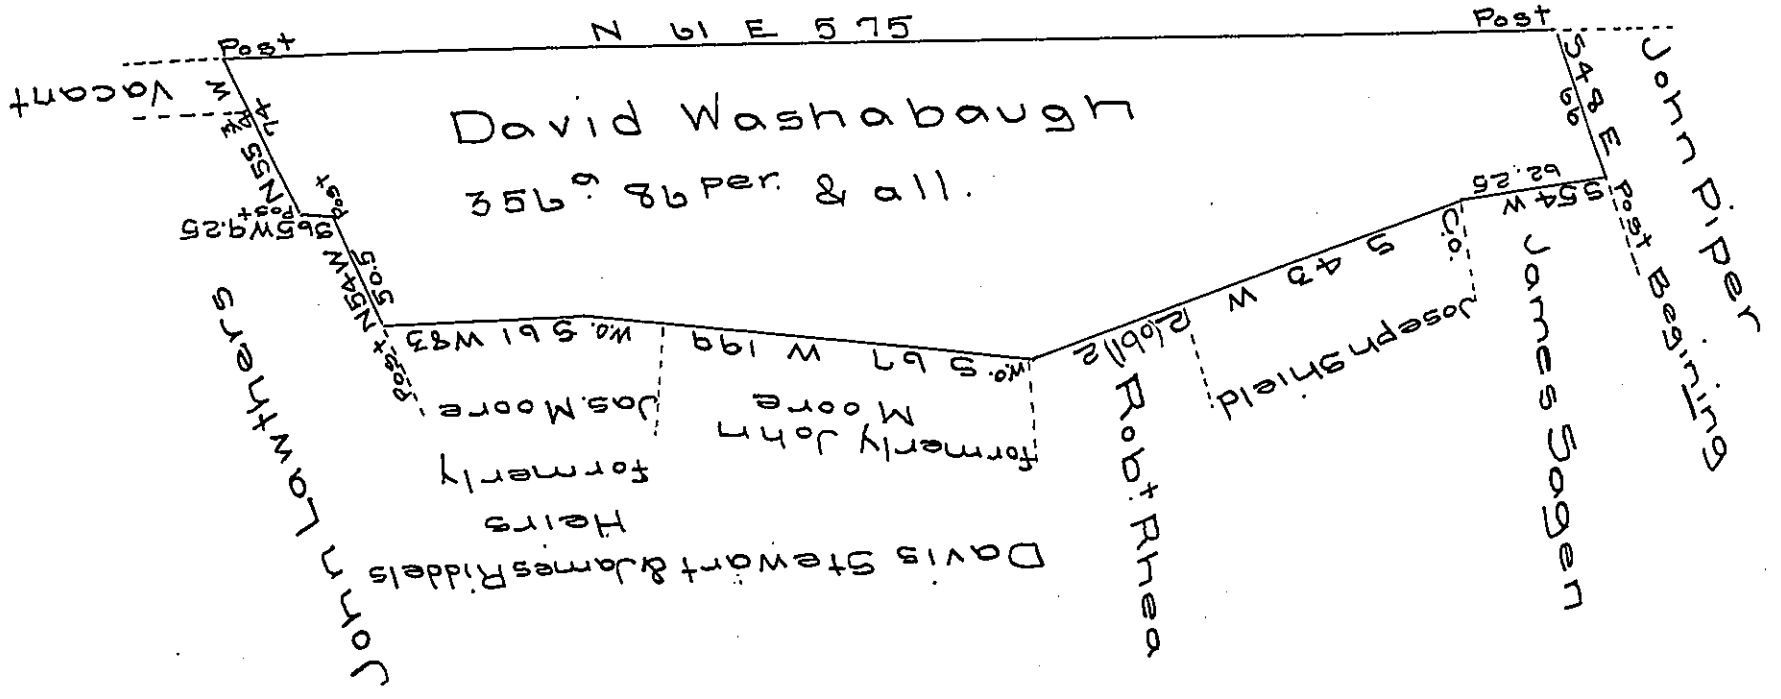 N 61 E 575
Post
Post
Vacant
David Washabaugh
356 a. 86 per. & all.
S 48 E
66
John Piper
Post Begining
62.25
S 54 W
James Sagen
C.o.
S 43 W
Joseph Shield
Rob.t Rhea
W.o. S 67 W 199
formerly John
Moore
W.o. S 61 W 83
Jas. Moore
formerly
Heirs
Davis Stewart & James Riddels
Post
N 54 W
50.5
Post
S 65 W 9.25
Post
N 55 W
74
John Lawthers